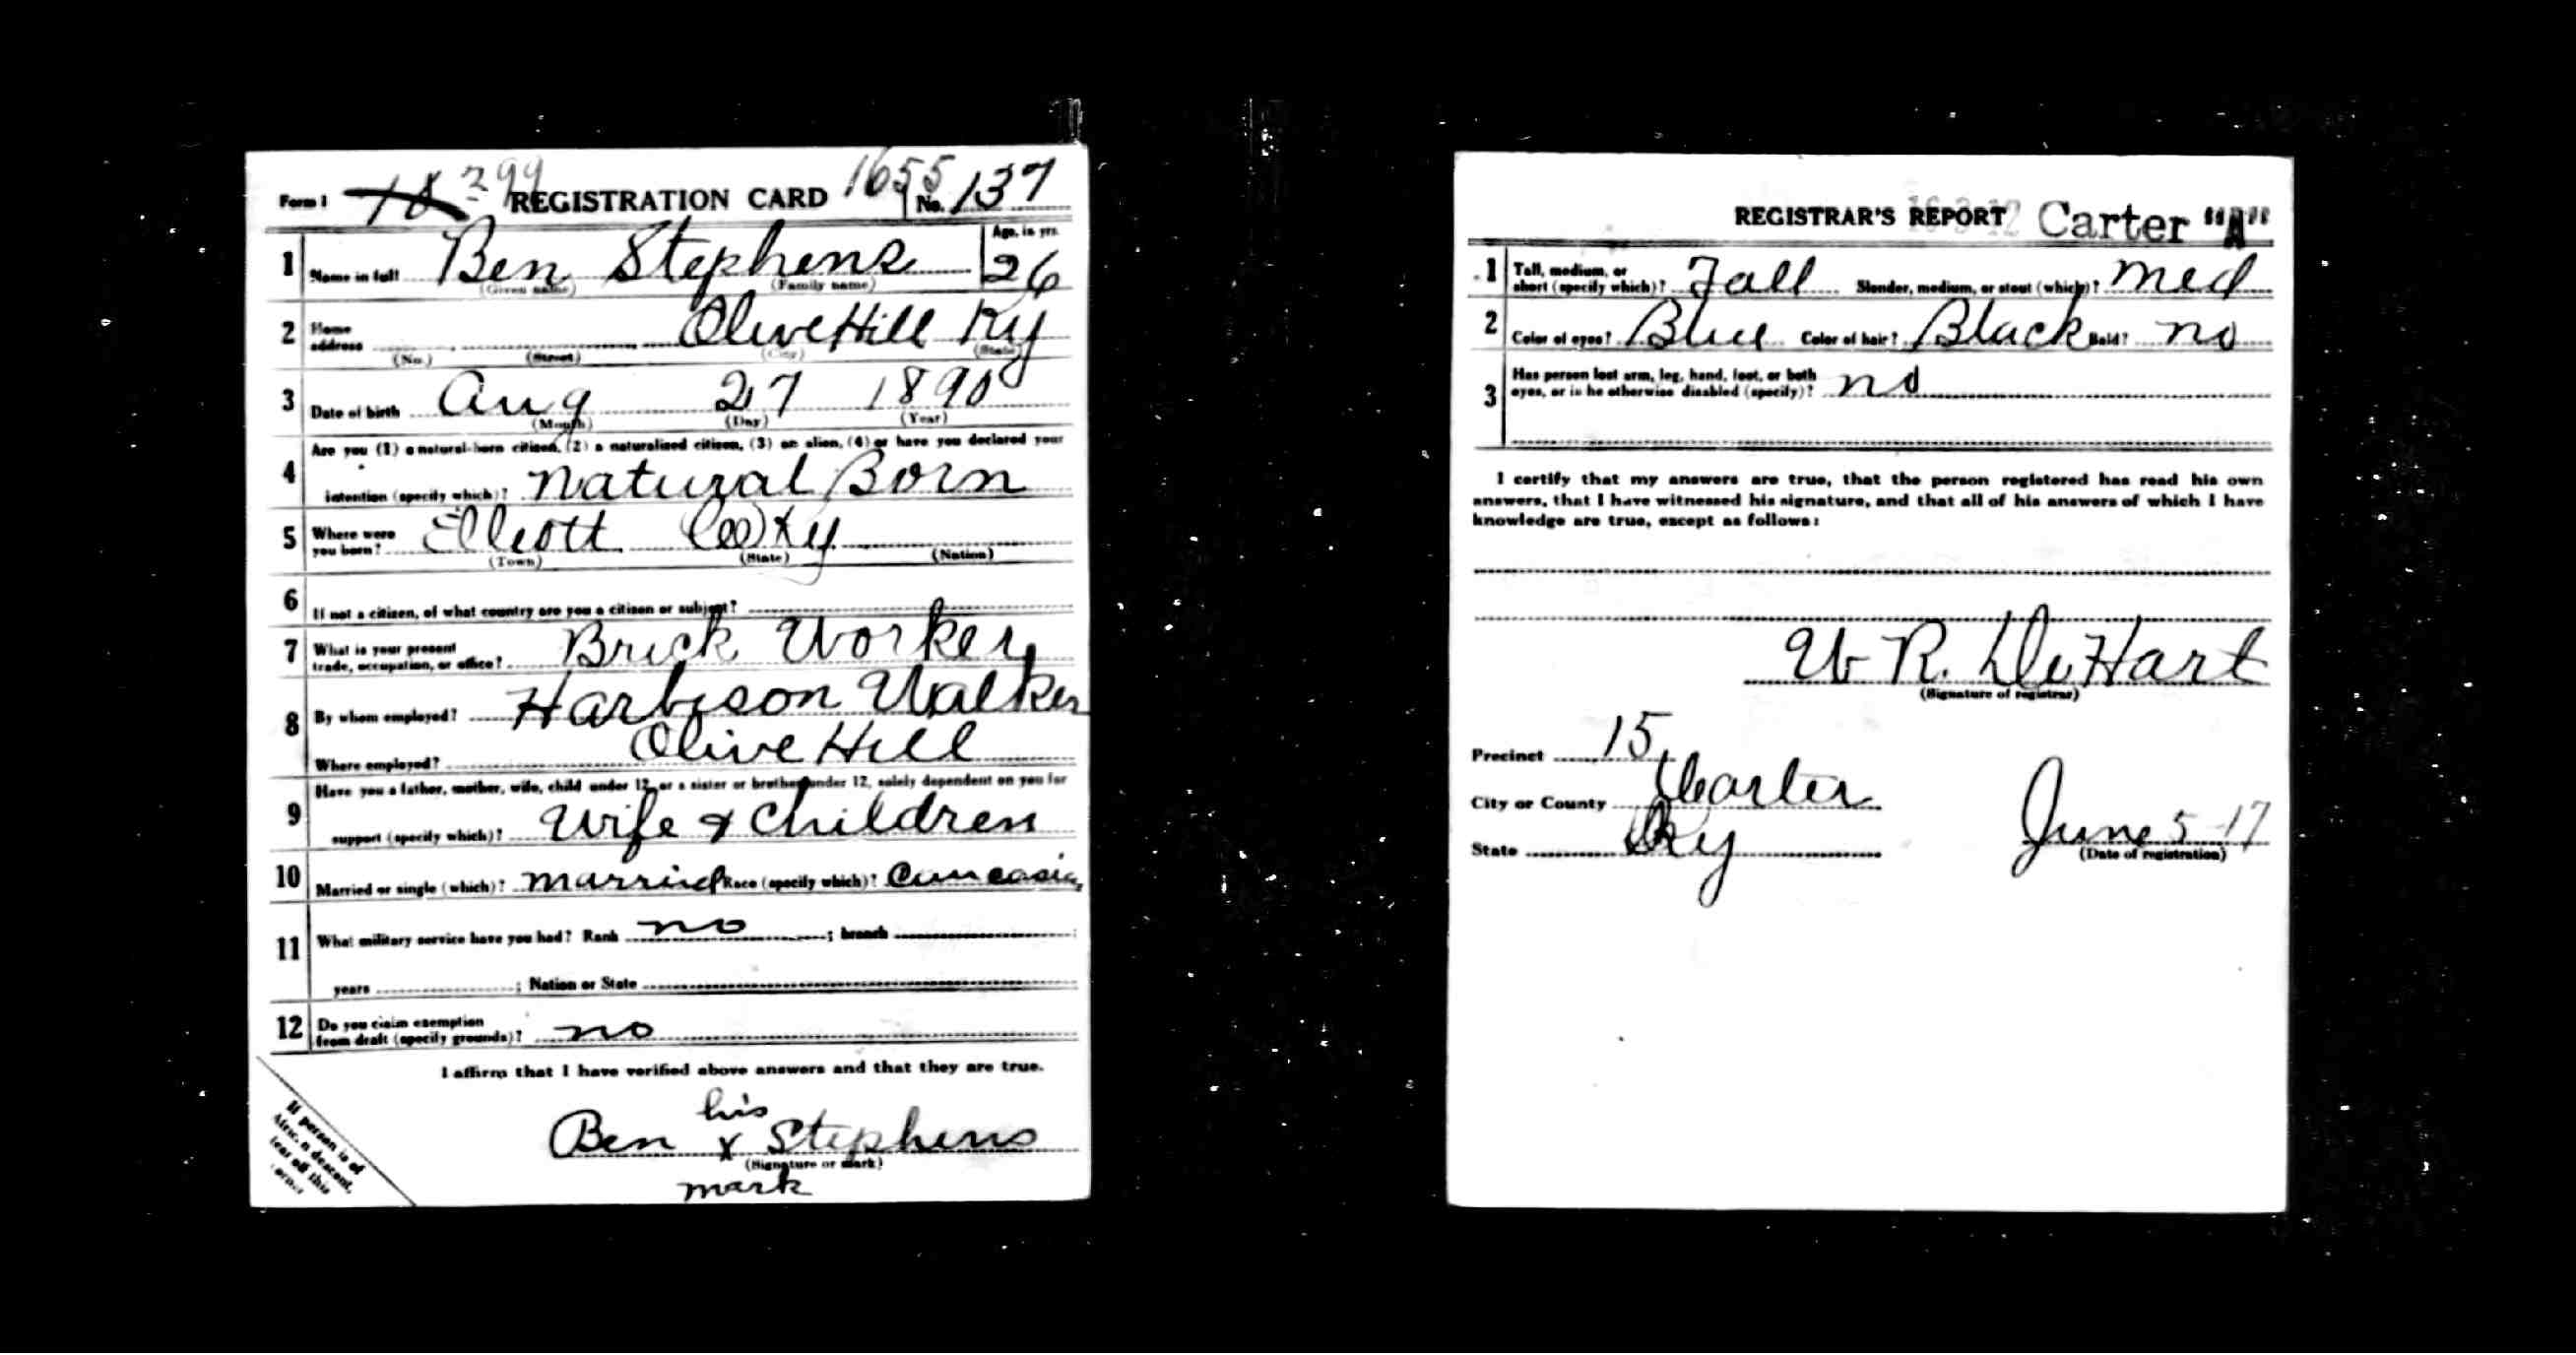 Form 1 18 299 REGISTRATION CARD 1655 No. 137
1 Name in full Ben Stephens Age, in yrs. 26
(Given name) (Family name)
2 Home address Olive Hill Ky
(No.) (Street) (City) (State)
3 Date of birth Aug 27 1890
(Month) (Day) (Year)
4 Are you (1) a natural-born citizen, (2) a naturalized citizen, (3) an alien, (4) or have you declared your
intention (specify which)? Natural Born
5 Where were you born? Elliott Co Ky
(Town) (State) (Nation)
6 If not a citizen, of what country are you a citizen or subject?
7 What is your present trade, occupation, or office? Brick Worker
8 By whom employed? Harbison Walker
Where employed? Olive Hill
9 Have you a father, mother, wife, child under 12, or a sister or brother under 12, solely dependent on you for
support (specify which)? Wife & Children
10 Married or single (which)? married Race (specify which)? Caucasia
11 What military service have you had? Rank no ; branch
years ; Nation or State
12 Do you claim exemption from draft (specify grounds)? no
I affirm that I have verified above answers and that they are true.
his
Ben X Stephens
(Signature or mark)
mark
If person is of
African descent,
tear off this
corner
REGISTRAR'S REPORT Carter "A"
1 Tall, medium, or short (specify which)? Tall Slender, medium, or stout (which)? med
2 Color of eyes? Blue Color of hair? Black Bald? no
3 Has person lost arm, leg, hand, foot, or both
eyes, or is he otherwise disabled (specify)? no
I certify that my answers are true, that the person registered has read his own
answers, that I have witnessed his signature, and that all of his answers of which I have
knowledge are true, except as follows:
W R. DeHart
(Signature of registrar)
Precinct 15
City or County Carter
State Ky June 5-17
(Date of registration)